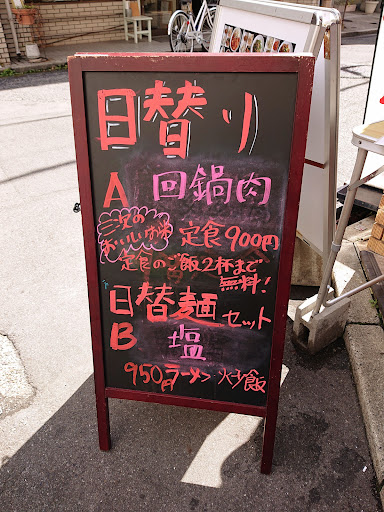 日替り
A 回鍋肉
三次の
おいしいお米
定食900円
定食のご飯2杯まで
無料!
日替麺セット
B 塩
950円ラーメン 炒飯